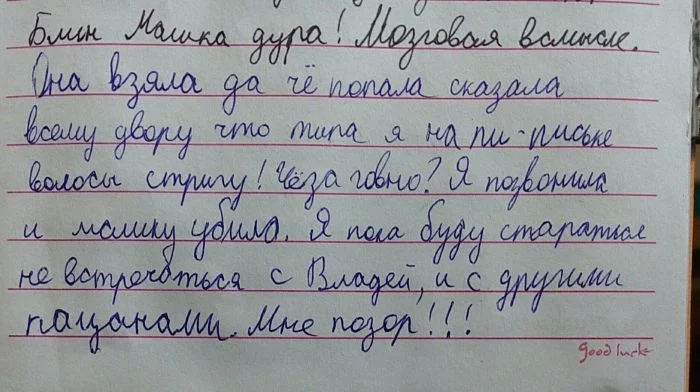 Блин Машка дура! Мозговая всмысле.
Она взяла да чё попала сказала
всему двору что типа я на пи-письке
волосы стригу! Чё за говно? Я позвонила
и машку убила. Я пока буду стараться
не встречаться с Владей, и с другими
пацанами. Мне позор!!!
Good luck